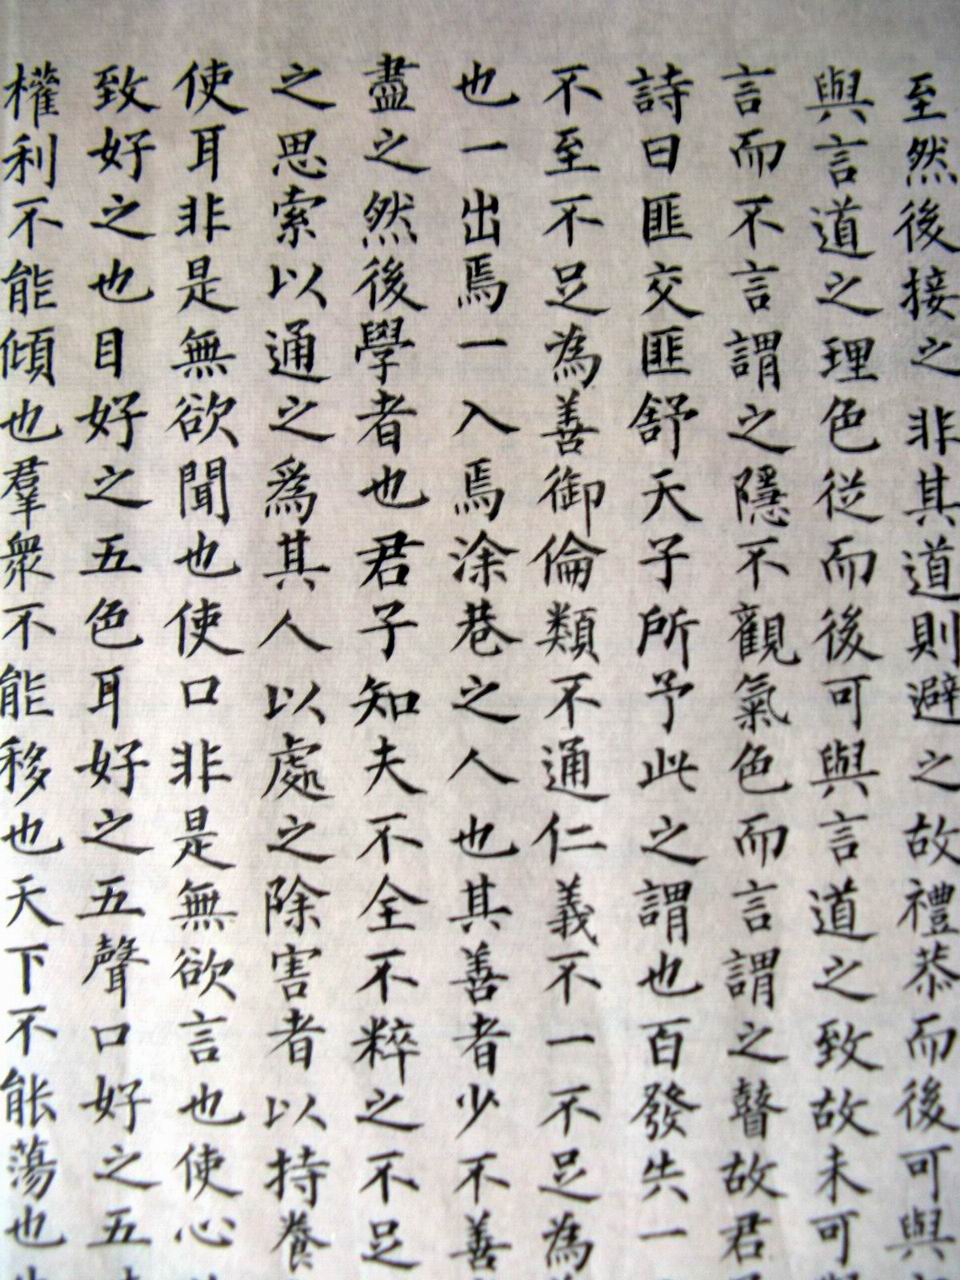 至然後接之非其道則避之故禮恭而後可與
與言道之理色從而後可與言道之致故未可
言而不言謂之隱不觀氣色而言謂之瞽故君
詩曰匪交匪舒天子所予此之謂也百發失一
不至不足為善御倫類不通仁義不一不足為
也一出焉一入焉涂巷之人也其善者少不善
盡之然後學者也君子知夫不全不粹之不足
之思索以通之為其人以處之除害者以持養
使耳非是無欲聞也使口非是無欲言也使心
致好之也目好之五色耳好之五聲口好之五
權利不能傾也羣衆不能移也天下不能蕩也